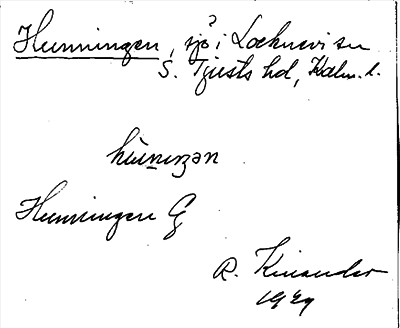 Hunningen, sjö i Locknevi sn
S. Tjusts hd, Kalm. l.
hùnıŋən
Hunningen G
R. Kinander
1929